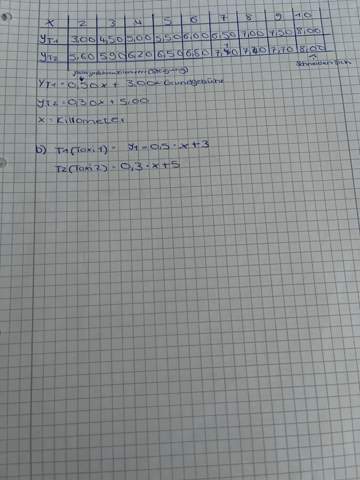 x 2 3 4 5 6 7 8 9 10
YT1 3,00 4,50 5,00 5,50 6,00 6,50 7,00 7,50 8,00
YT2 5,60 5,90 6,20 6,50 6,80 7,40 7,70 8,00
Schnittpunkt
YT1 = 0,50x + 3,00 Grundgebühr
YT2 = 0,30x + 5,00
x = Killometer
b) T1 (Taxi 1) = y1 = 0,5 · x + 3
T2 (Taxi 2) = 0,3 · x + 5